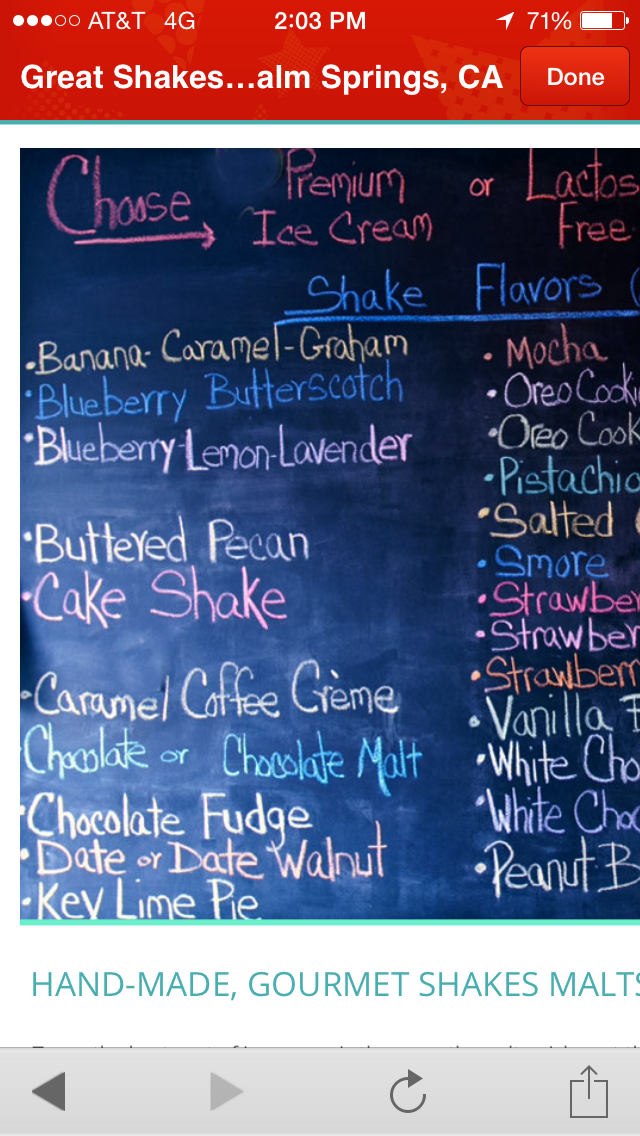 AT&T 4G 2:03 PM 71%
Great Shakes...alm Springs, CA Done
Choose Premium Ice Cream or Lactos Free
Shake Flavors (
•Banana-Caramel-Graham
•Blueberry Butterscotch
•Blueberry-Lemon-Lavender
•Buttered Pecan
•Cake Shake
•Caramel Coffee Crème
Chocolate or Chocolate Malt
•Chocolate Fudge
•Date or Date Walnut
•Key Lime Pie
•Mocha
•Oreo Cooki
•Oreo Cook
•Pistachio
•Salted
•Smore
•Strawber
•Strawber
•Strawberr
•Vanilla
•White Cho
•White Choc
•Peanut B
HAND-MADE, GOURMET SHAKES MALTS